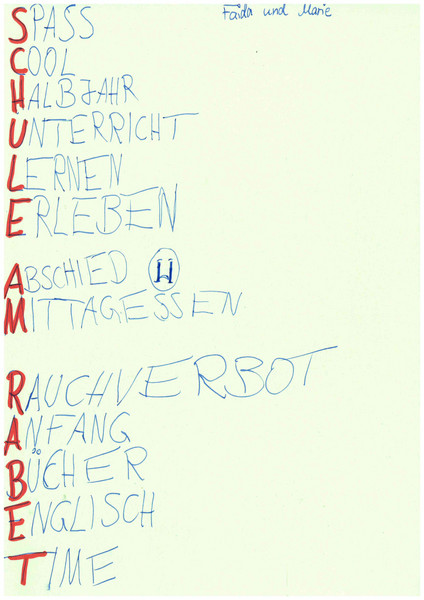 Faida und Marie
SPASS
COOL
HALBJAHR
UNTERRICHT
LERNEN
ERLEBEN
ABSCHIED
MITTAGESSEN
RAUCHVERBOT
ANFANG
BÜCHER
ENGLISCH
TIME